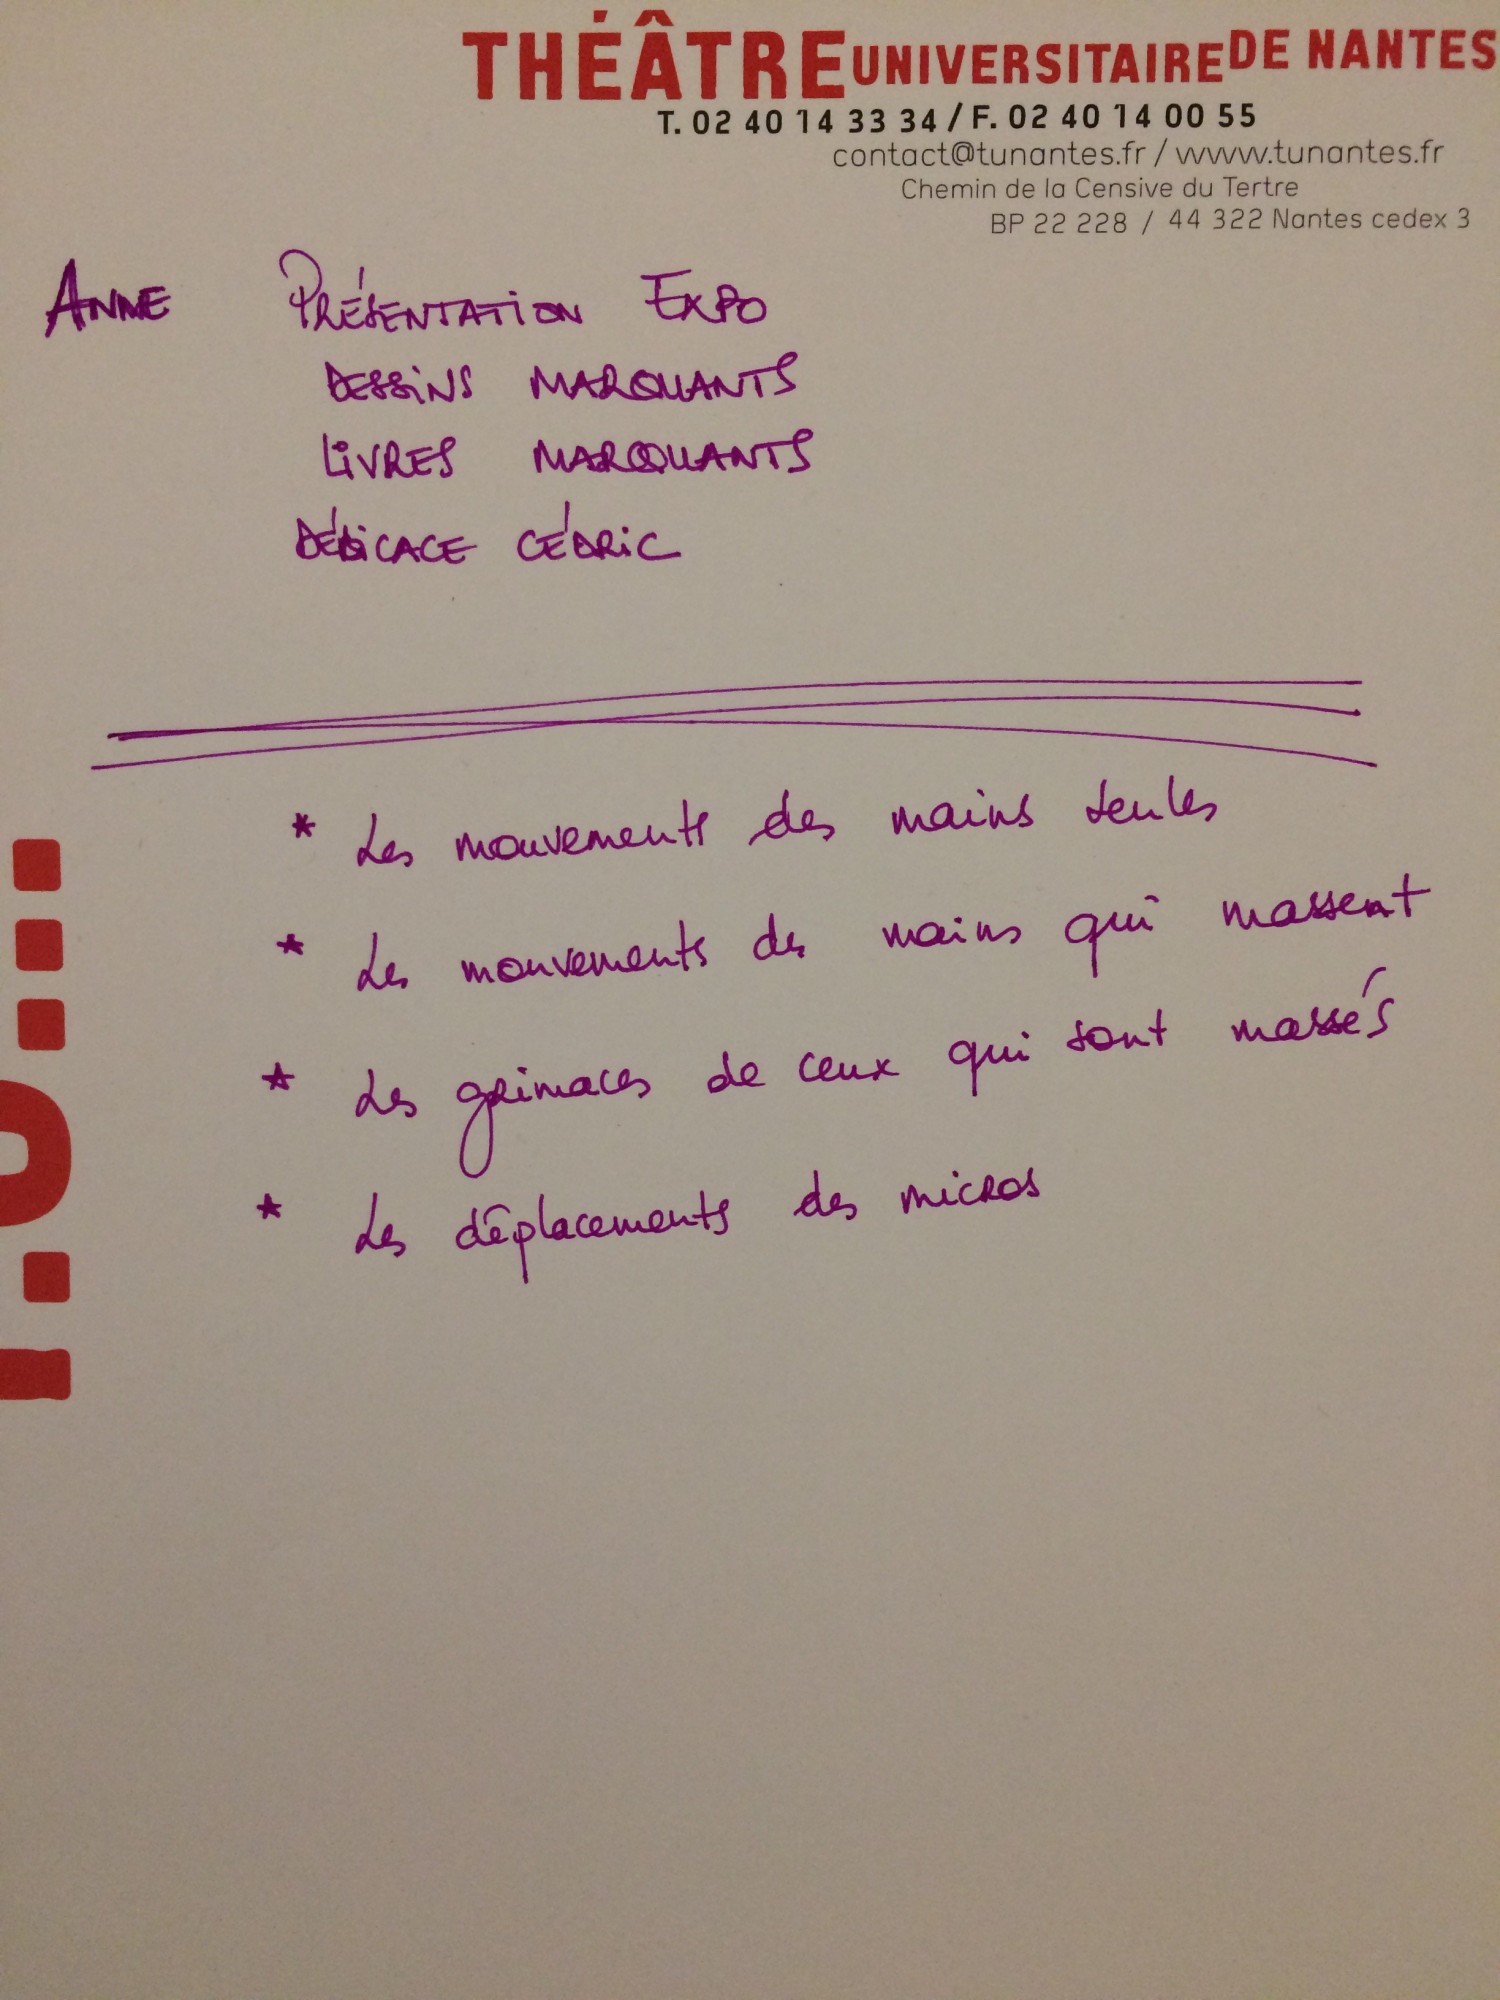 THÉÂTRE UNIVERSITAIRE DE NANTES
T. 02 40 14 33 34 / F. 02 40 14 00 55
contact@tunantes.fr / www.tunantes.fr
Chemin de la Censive du Tertre
BP 22 228 / 44 322 Nantes cedex 3
ANNE PRÉSENTATION EXPO
DESSINS MARQUANTS
LIVRES MARQUANTS
DÉDICACE CÉDRIC
* Les mouvements des mains seules
* Les mouvements des mains qui massent
* Les grimaces de ceux qui sont massés
* Les déplacements des micros